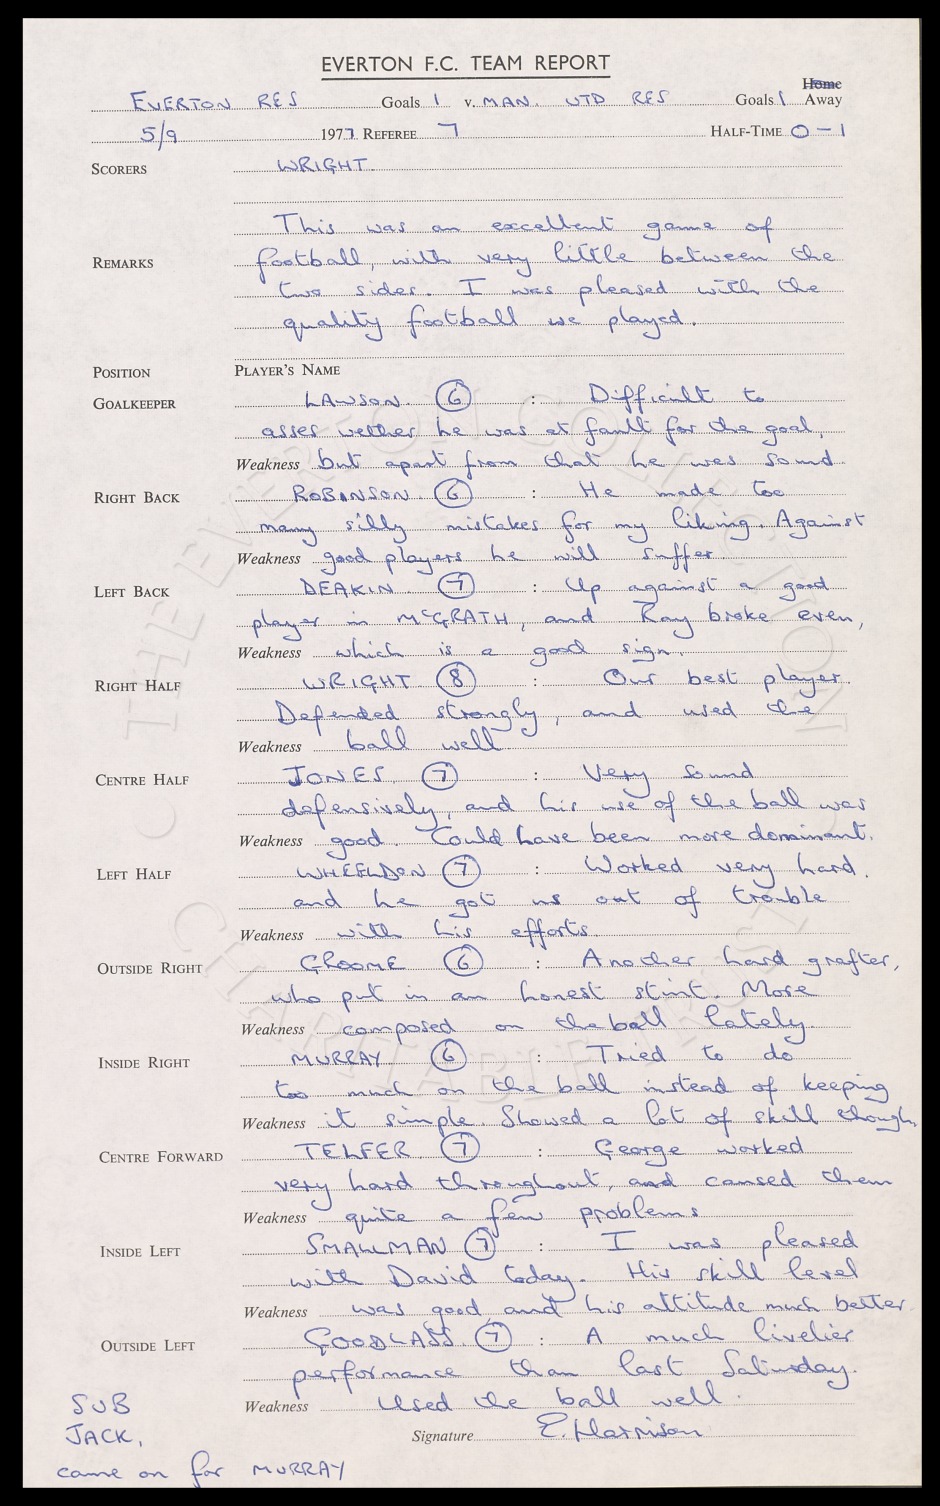 EVERTON F.C. TEAM REPORT
Home
EVERTON RES Goals 1 v. MAN. UTD RES Goals 1 Away
5/9 1977 REFEREE 7 HALF-TIME 0-1
SCORERS WRIGHT.
This was an excellent game of
REMARKS football, with very little between the
two sides. I was pleased with the
quality football we played.
POSITION PLAYER'S NAME
GOALKEEPER LAWSON. 6 : Difficult to
asses wether he was at fault for the goal,
Weakness but apart from that he was sound
RIGHT BACK ROBINSON. 6 : He made too
many silly mistakes for my liking. Against
Weakness good players he will suffer
LEFT BACK DEAKIN. 7 : Up against a good
player in McGRATH, and Ray broke even,
Weakness which is a good sign.
RIGHT HALF WRIGHT 8 : Our best player.
Defended strongly, and used the
Weakness ball well
CENTRE HALF JONES. 7 : Very sound
defensively, and his use of the ball was
Weakness good. Could have been more dominant.
LEFT HALF WHEELDON 7 : Worked very hard,
and he got us out of trouble
Weakness with his efforts.
OUTSIDE RIGHT GROOME 6 : Another hard grafter,
who put in an honest stint. More
Weakness composed on the ball lately.
INSIDE RIGHT MURRAY 6 : Tried to do
too much on the ball instead of keeping
Weakness it simple. Showed a lot of skill though.
CENTRE FORWARD TELFER. 7 : George worked
very hard throughout, and caused them
Weakness quite a few problems
INSIDE LEFT SMALLMAN 7 : I was pleased
with David today. His skill level
Weakness was good and his attitude much better.
OUTSIDE LEFT GOODLASS. 7 : A much livelier
performance than last Saturday.
Weakness Used the ball well.
SUB
JACK, Signature E. Harrison
came on for MURRAY
THE EVERTON COLLECTION
CHARITABLE TRUST